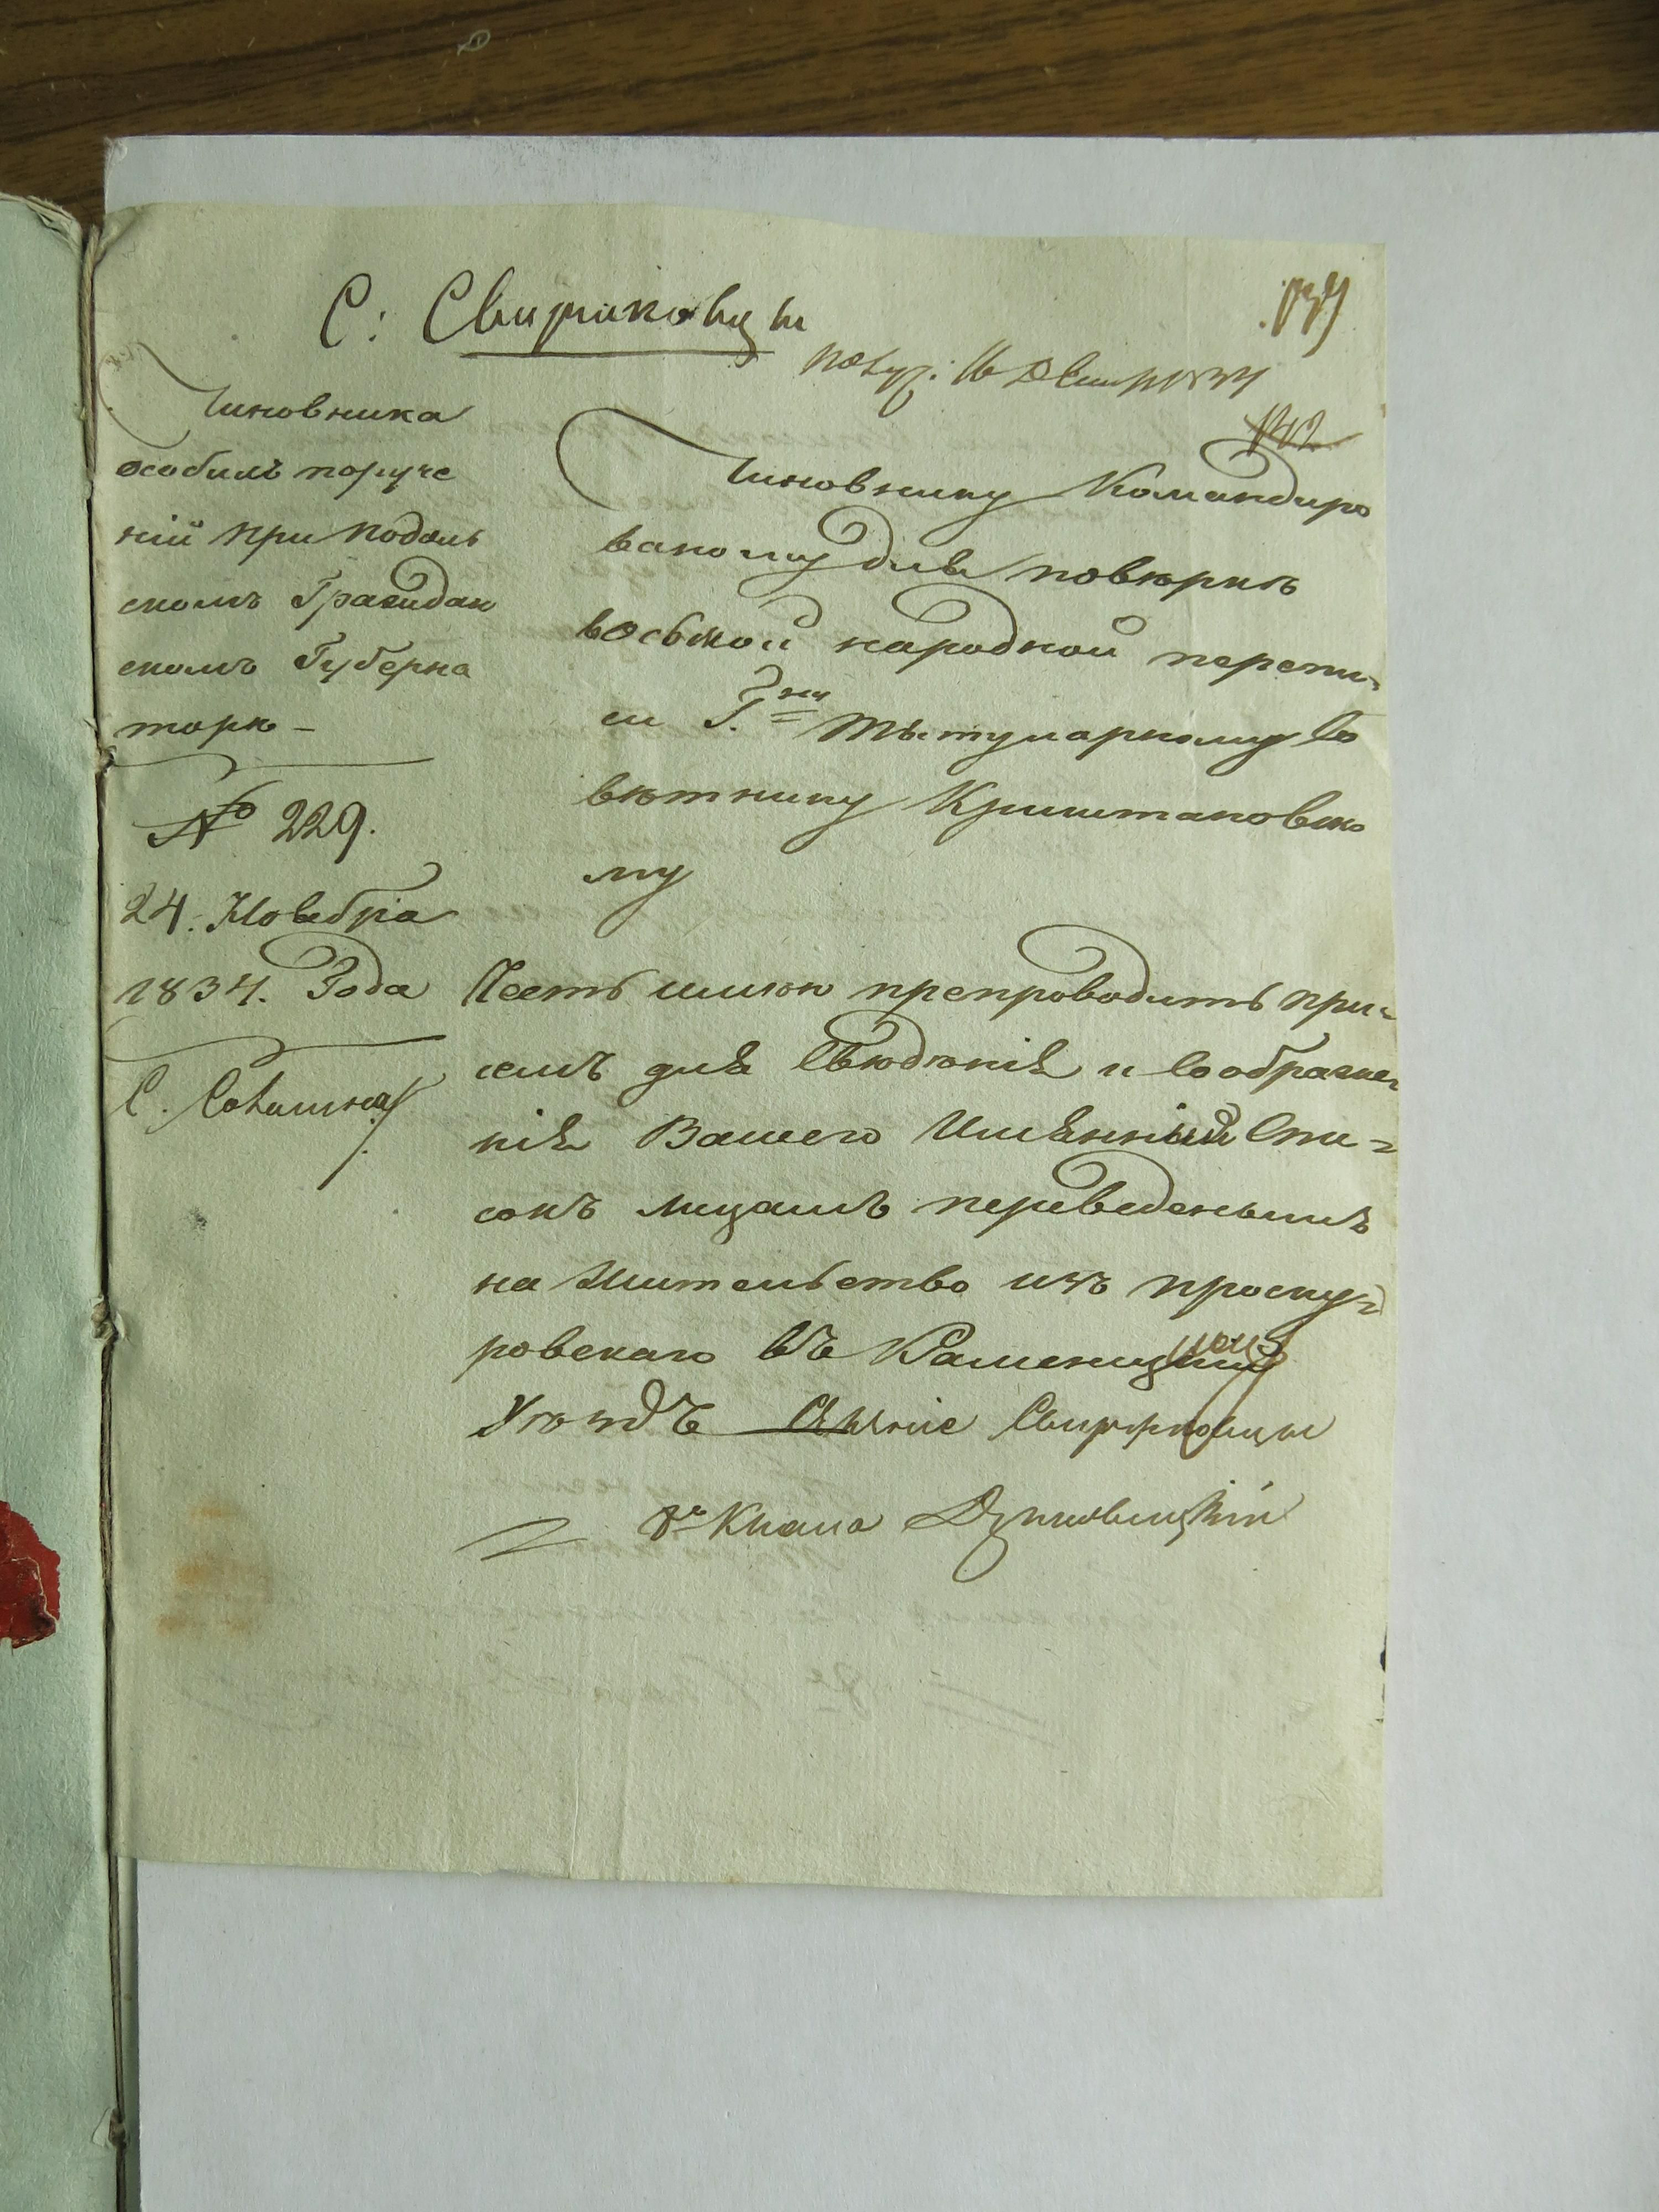 С: Свириковцы
Чиновника
особыхъ поруче
ній при Подоль
скомъ Граждан
скомъ Губерна
торѣ –
№ 229.
24. Ноября
1834. Года
С.
Чиновнику Командиро
ваному для повѣрки
восьмой народной перепи-
си Г.ну Тытулярному Со
вѣтнику Криштановско
му
Честь имѣю препроводить при-
семъ для Свѣдѣнія и Соображе
нія Вашего Имянный Спи-
сокъ лицамъ переведенымъ
на Жительство изъ проску-
ровскаго въ Каменецкій
Уѣздъ